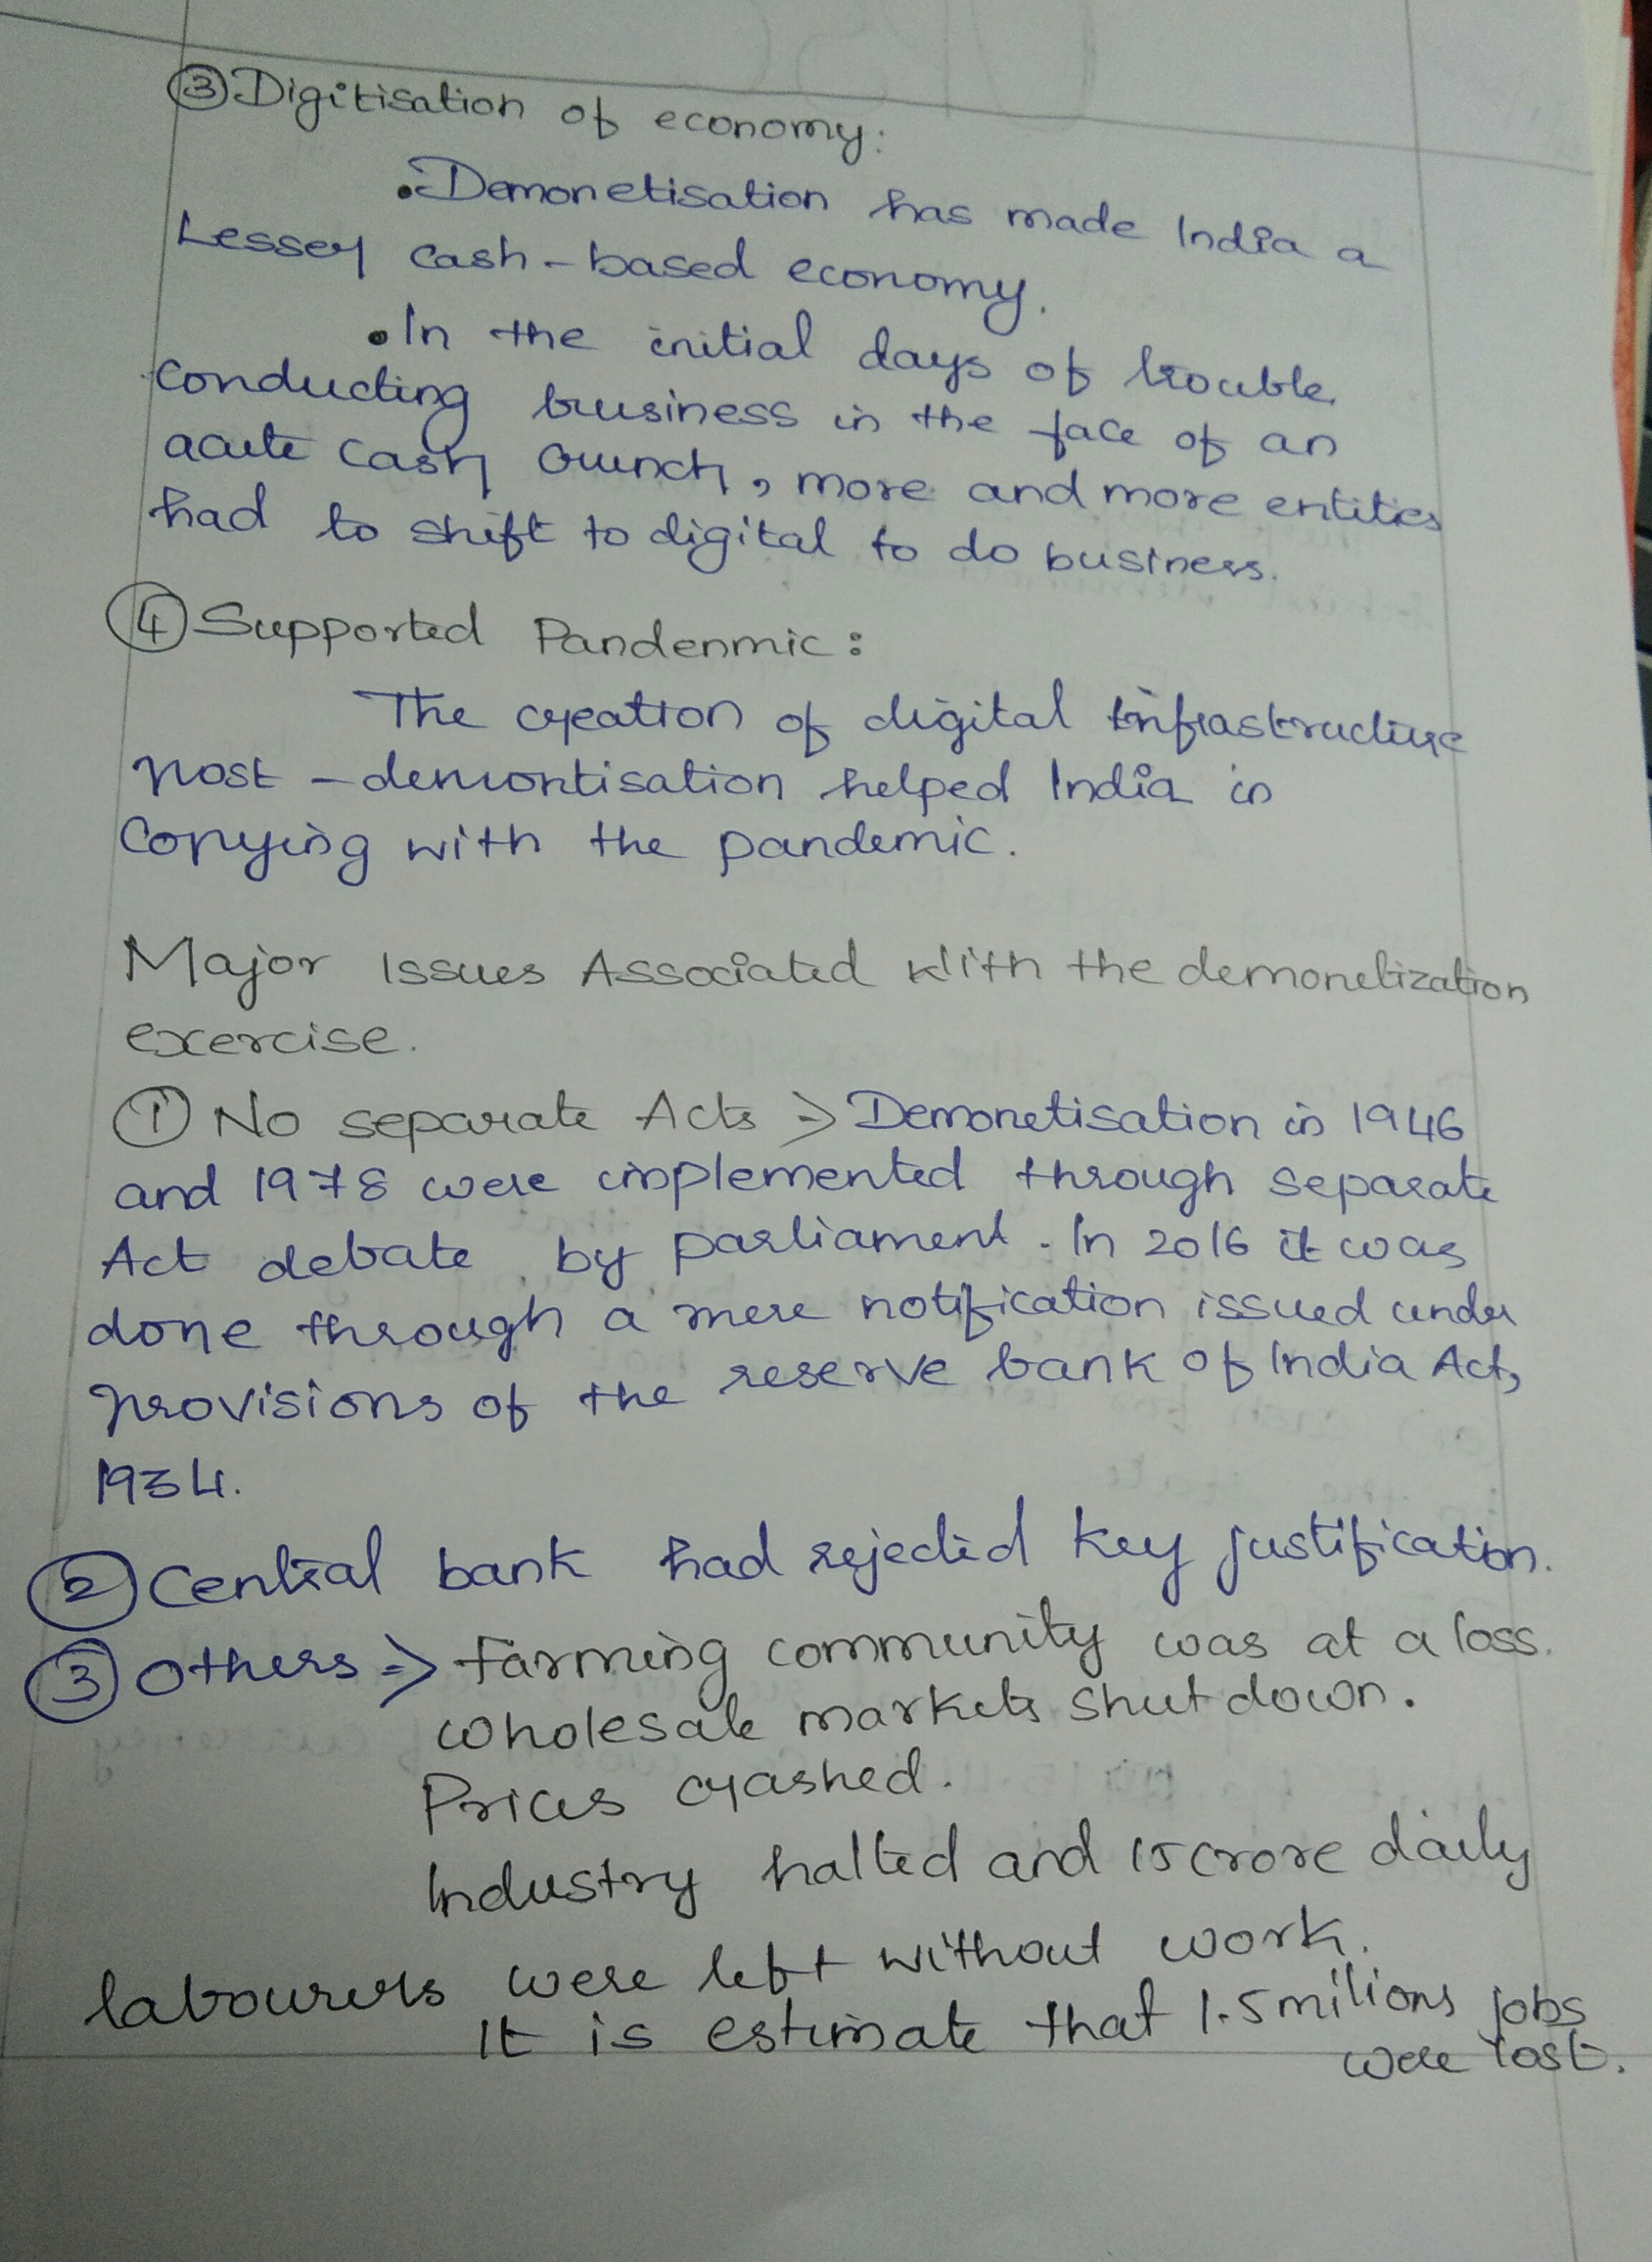 ③ Digitisation of economy:
• Demonetisation has made India a
Lesser cash-based economy.
• In the initial days of trouble
conducting business in the face of an
acute cash crunch, more and more entities
had to shift to digital to do business.
④ Supported Pandenmic:
The creation of digital infrastructure
post-demontisation helped India in
Copying with the pandemic.
Major Issues Associated With the demonetization
exercise.
① No separate Acts => Demonetisation in 1946
and 1978 were implemented through separate
Act debate by parliament. In 2016 it was
done through a mere notification issued under
provisions of the reserve bank of India Act,
1934.
② Central bank had rejected key justification.
③ Others => Farming community was at a loss.
wholesale markets shutdown.
Prices crashed.
Industry halted and 15 crore daily
labourers were left without work.
It is estimate that 1.5 milions jobs
were lost.